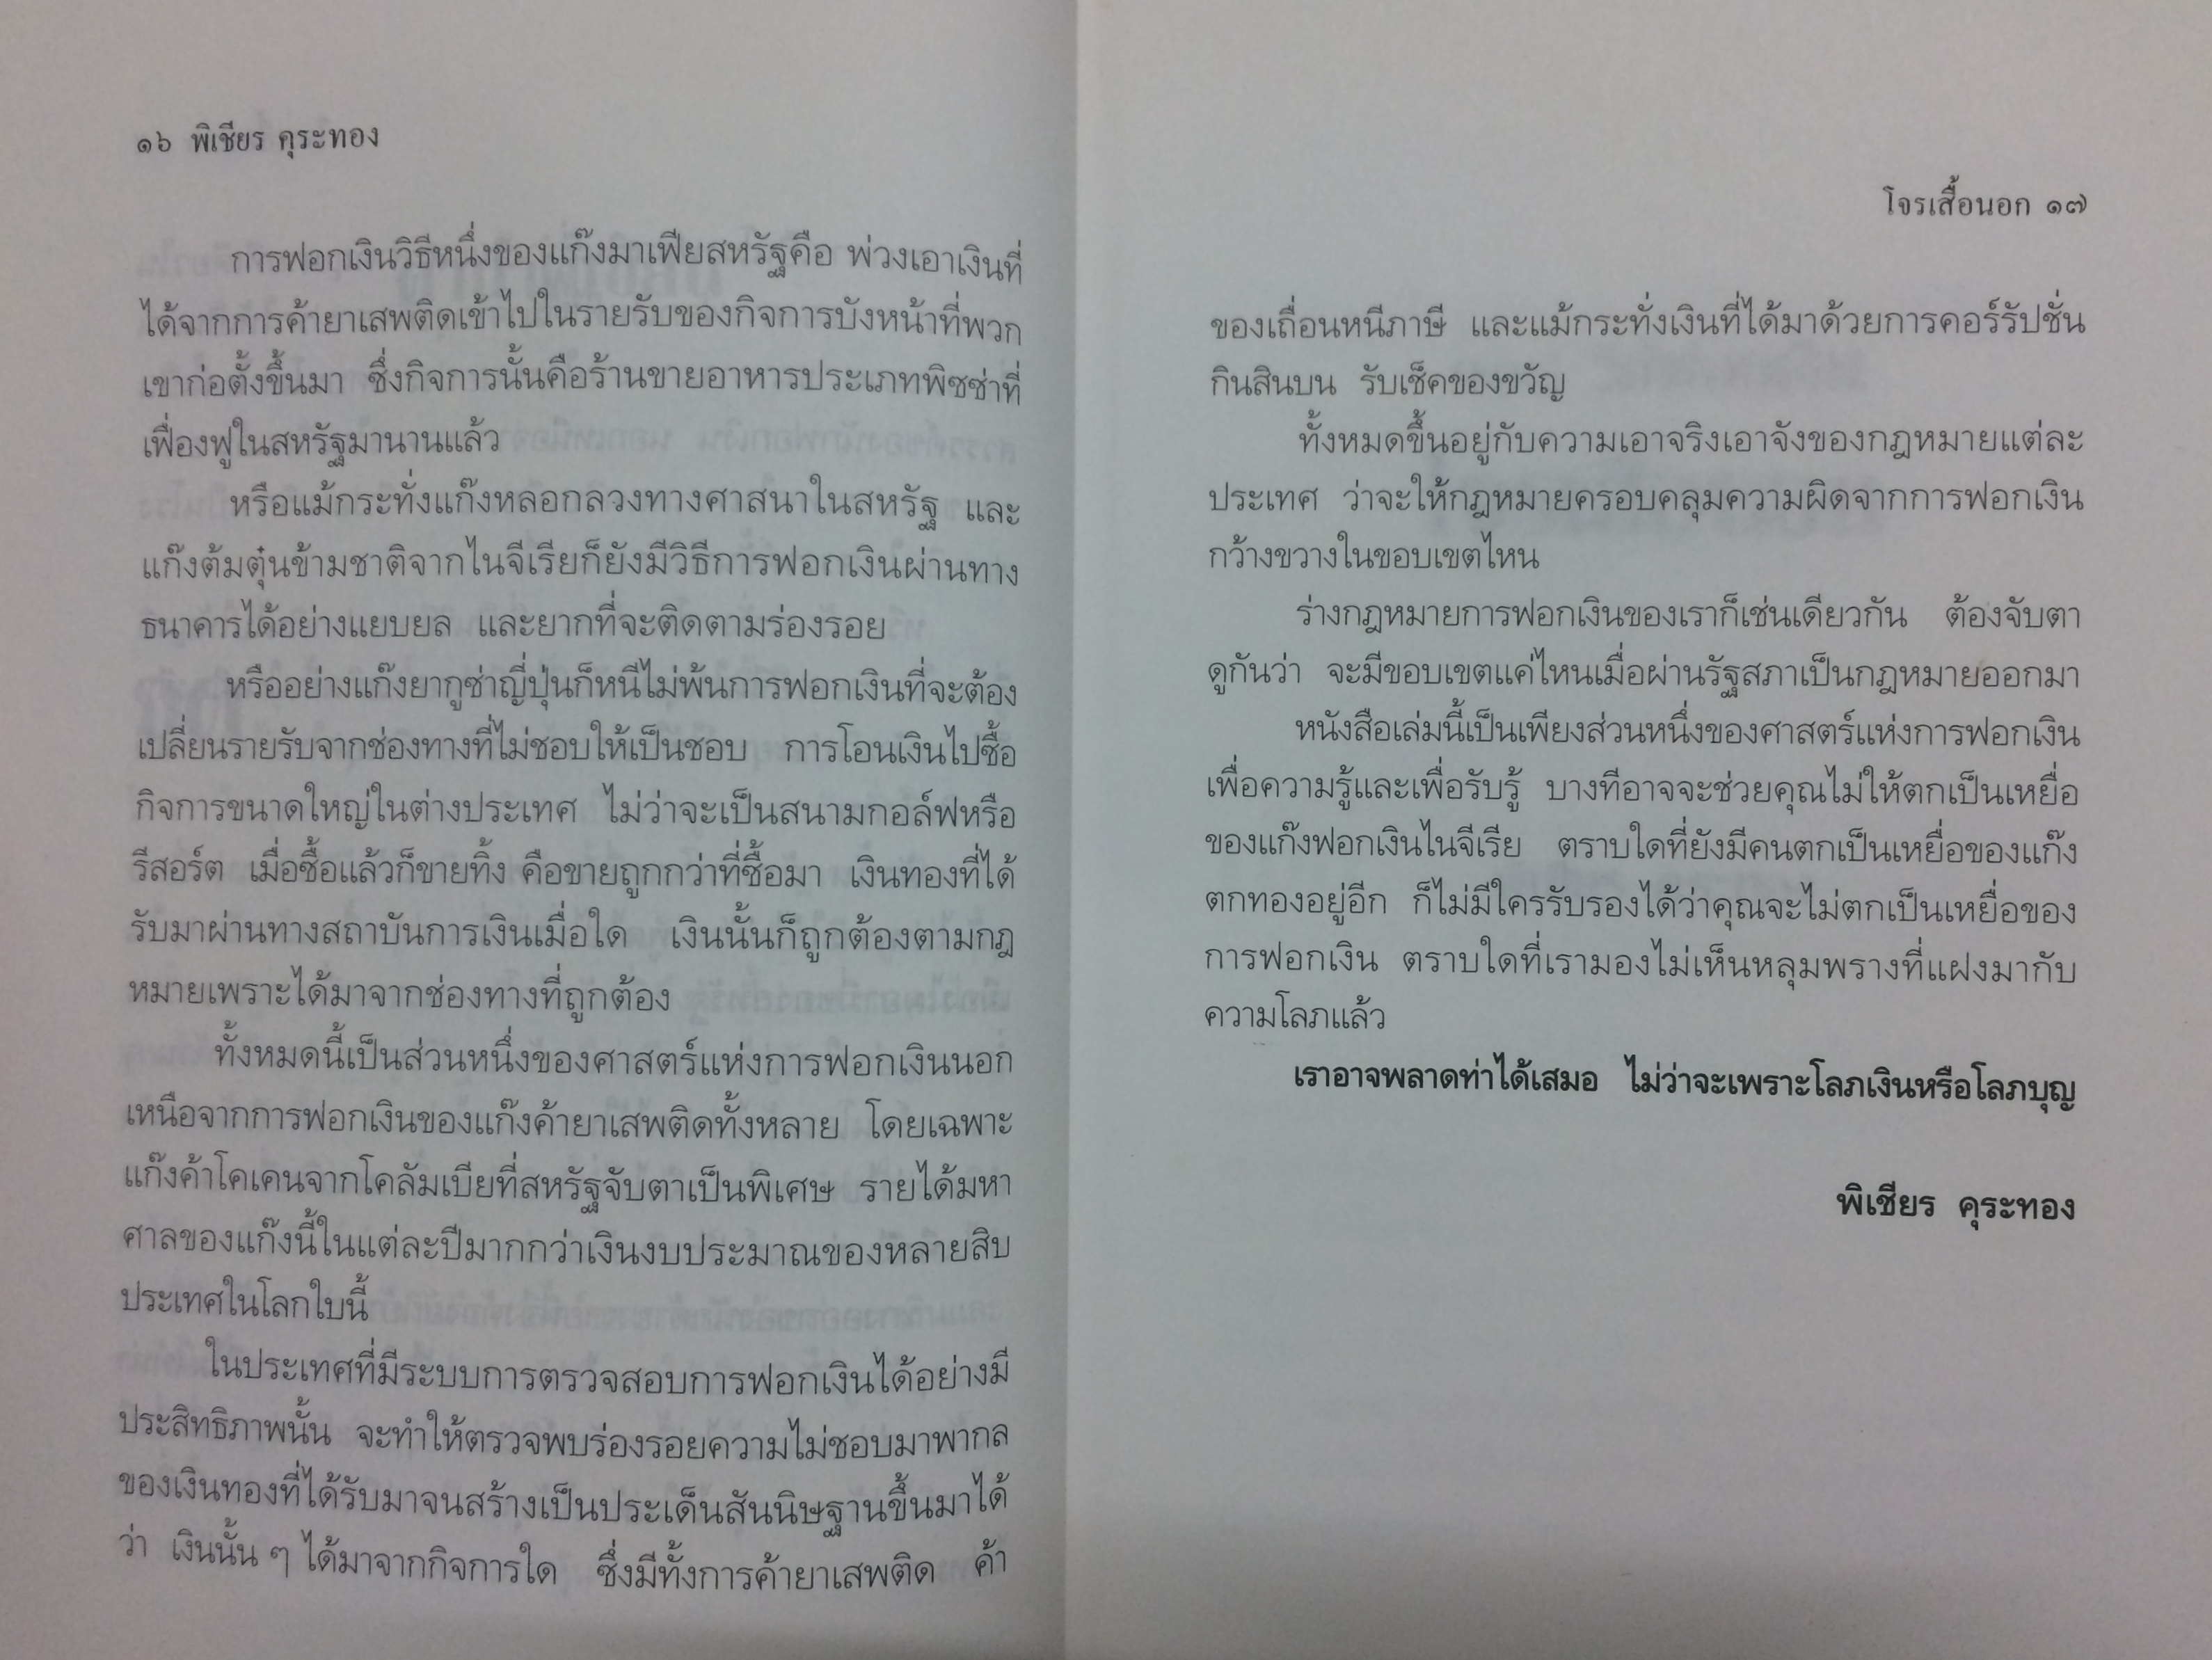 ๑๖ พิเชียร คุระทอง
การฟอกเงินวิธีหนึ่งของแก๊งมาเฟียสหรัฐคือ พ่วงเอาเงินที่
ได้จากการค้ายาเสพติดเข้าไปในรายรับของกิจการบังหน้าที่พวก
เขาก่อตั้งขึ้นมา ซึ่งกิจการนั้นคือร้านขายอาหารประเภทพิซซ่าที่
เฟื่องฟูในสหรัฐมานานแล้ว
หรือแม้กระทั่งแก๊งหลอกลวงทางศาสนาในสหรัฐ และ
แก๊งต้มตุ๋นข้ามชาติจากไนจีเรียก็ยังมีวิธีการฟอกเงินผ่านทาง
ธนาคารได้อย่างแยบยล และยากที่จะติดตามร่องรอย
หรืออย่างแก๊งยากูซ่าญี่ปุ่นก็หนีไม่พ้นการฟอกเงินที่จะต้อง
เปลี่ยนรายรับจากช่องทางที่ไม่ชอบให้เป็นชอบ การโอนเงินไปซื้อ
กิจการขนาดใหญ่ในต่างประเทศ ไม่ว่าจะเป็นสนามกอล์ฟหรือ
รีสอร์ต เมื่อซื้อแล้วก็ขายทิ้ง คือขายถูกกว่าที่ซื้อมา เงินทองที่ได้
รับมาผ่านทางสถาบันการเงินเมื่อใด เงินนั้นก็ถูกต้องตามกฎ
หมายเพราะได้มาจากช่องทางที่ถูกต้อง
ทั้งหมดนี้เป็นส่วนหนึ่งของศาสตร์แห่งการฟอกเงินนอก
เหนือจากการฟอกเงินของแก๊งค้ายาเสพติดทั้งหลาย โดยเฉพาะ
แก๊งค้าโคเคนจากโคลัมเบียที่สหรัฐจับตาเป็นพิเศษ รายได้มหา
ศาลของแก๊งนี้ในแต่ละปีมากกว่าเงินงบประมาณของหลายสิบ
ประเทศในโลกใบนี้
ในประเทศที่มีระบบการตรวจสอบการฟอกเงินได้อย่างมี
ประสิทธิภาพนั้น จะทำให้ตรวจพบร่องรอยความไม่ชอบมาพากล
ของเงินทองที่ได้รับมาจนสร้างเป็นประเด็นสันนิษฐานขึ้นมาได้
ว่า เงินนั้น ๆ ได้มาจากกิจการใด ซึ่งมีทั้งการค้ายาเสพติด ค้า
โจรเสื้อนอก ๑๗
ของเถื่อนหนีภาษี และแม้กระทั่งเงินที่ได้มาด้วยการคอร์รัปชั่น
กินสินบน รับเช็คของขวัญ
ทั้งหมดขึ้นอยู่กับความเอาจริงเอาจังของกฎหมายแต่ละ
ประเทศ ว่าจะให้กฎหมายครอบคลุมความผิดจากการฟอกเงิน
กว้างขวางในขอบเขตไหน
ร่างกฎหมายการฟอกเงินของเราก็เช่นเดียวกัน ต้องจับตา
ดูกันว่า จะมีขอบเขตแค่ไหนเมื่อผ่านรัฐสภาเป็นกฎหมายออกมา
หนังสือเล่มนี้เป็นเพียงส่วนหนึ่งของศาสตร์แห่งการฟอกเงิน
เพื่อความรู้และเพื่อรับรู้ บางทีอาจจะช่วยคุณไม่ให้ตกเป็นเหยื่อ
ของแก๊งฟอกเงินไนจีเรีย ตราบใดที่ยังมีคนตกเป็นเหยื่อของแก๊ง
ตกทองอยู่อีก ก็ไม่มีใครรับรองได้ว่าคุณจะไม่ตกเป็นเหยื่อของ
การฟอกเงิน ตราบใดที่เรามองไม่เห็นหลุมพรางที่แฝงมากับ
ความโลภแล้ว
เราอาจพลาดท่าได้เสมอ ไม่ว่าจะเพราะโลภเงินหรือโลภบุญ
พิเชียร คุระทอง